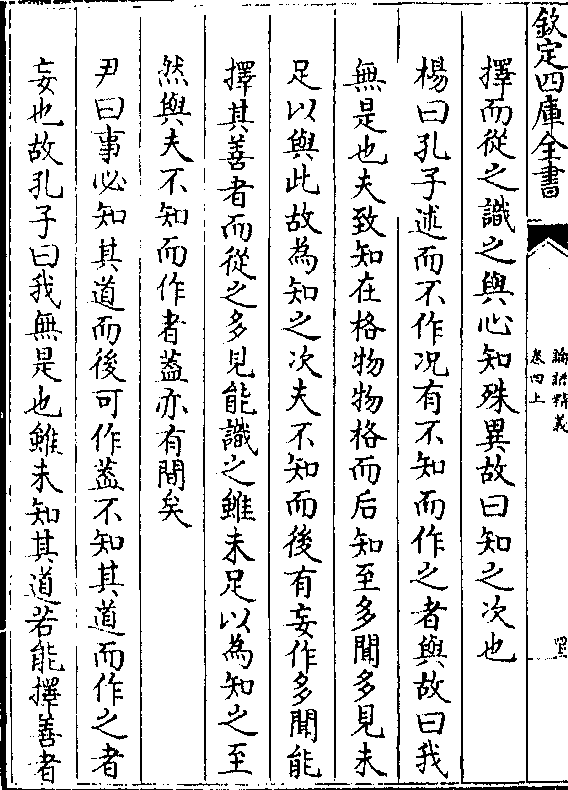 欽定四庫全書
論語精義
卷四上
擇而從之識之與心知殊異故曰知之次也
楊曰孔子述而不作况有不知而作之者與故曰我
無是也夫致知在格物物格而后知至多聞多見未
足以與此故為知之次夫不知而後有妄作多聞能
擇其善者而從之多見能識之雖未足以為知之至
然與夫不知而作者葢亦有間矣
尹曰事必知其道而後可作葢不知其道而作之者
妄也故孔子曰我無是也雖未知其道若能擇善者